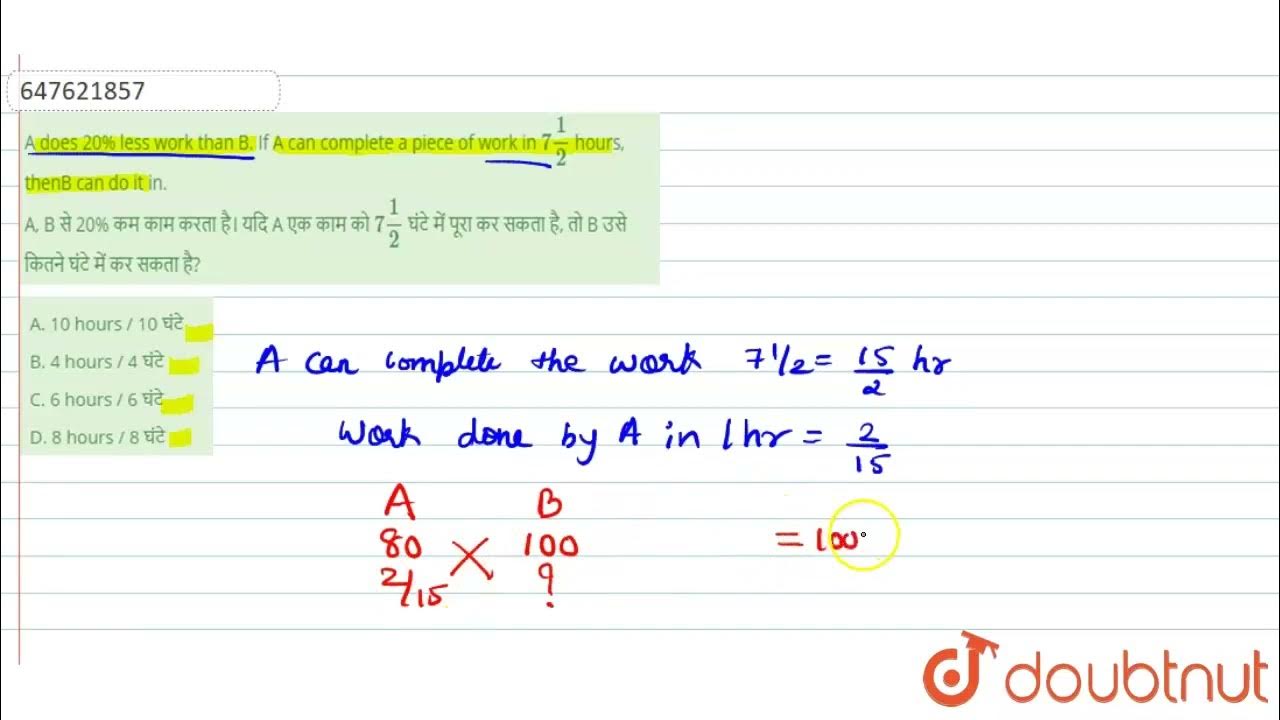 647621857
A does 20% less work than B. If A can complete a piece of work in 7 1/2 hours,
thenB can do it in.
A, B से 20% कम काम करता है। यदि A एक काम को 7 1/2 घंटे में पूरा कर सकता है, तो B उसे
कितने घंटे में कर सकता है?
A. 10 hours / 10 घंटे
B. 4 hours / 4 घंटे
C. 6 hours / 6 घंटे
D. 8 hours / 8 घंटे
A can complete the work 7 1/2 = 15/2 hr
Work done by A in 1 hr = 2/15
A B
80 100 = 100
2/15 ?
doubtnut